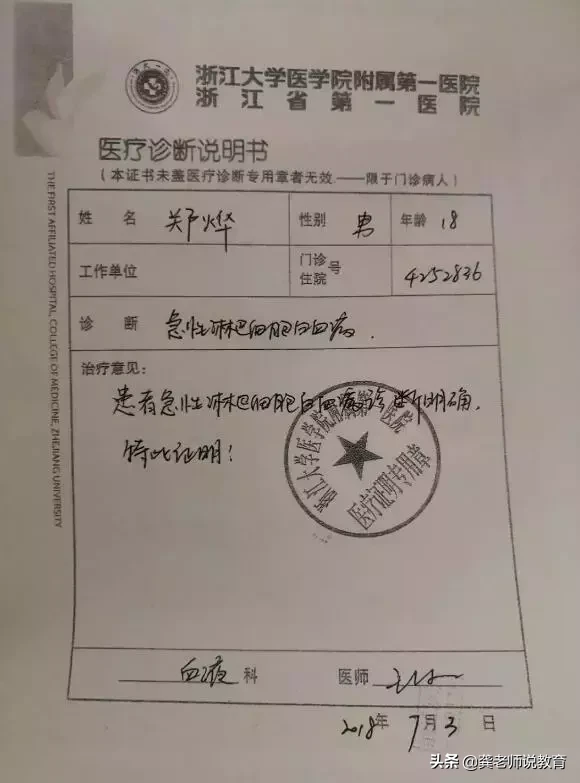 浙江大学医学院附属第一医院
浙江省第一医院
医疗诊断说明书
(本证书未盖医疗诊断专用章者无效——限于门诊病人)
姓 名 郑烨 性别 男 年龄 18
工作单位 门诊住院号 4252836
诊 断 急性淋巴细胞白血病.
治疗意见:
患者急性淋巴细胞白血病诊断明确.
特此证明!
浙江大学医学院附属第一医院
医疗证明专用章
血液 科 医师
2018年 7月3日
THE FIRST AFFILIATED HOSPITAL, COLLEGE OF MEDICINE, ZHEJIANG UNIVERSITY
头条 @龚老师说教育